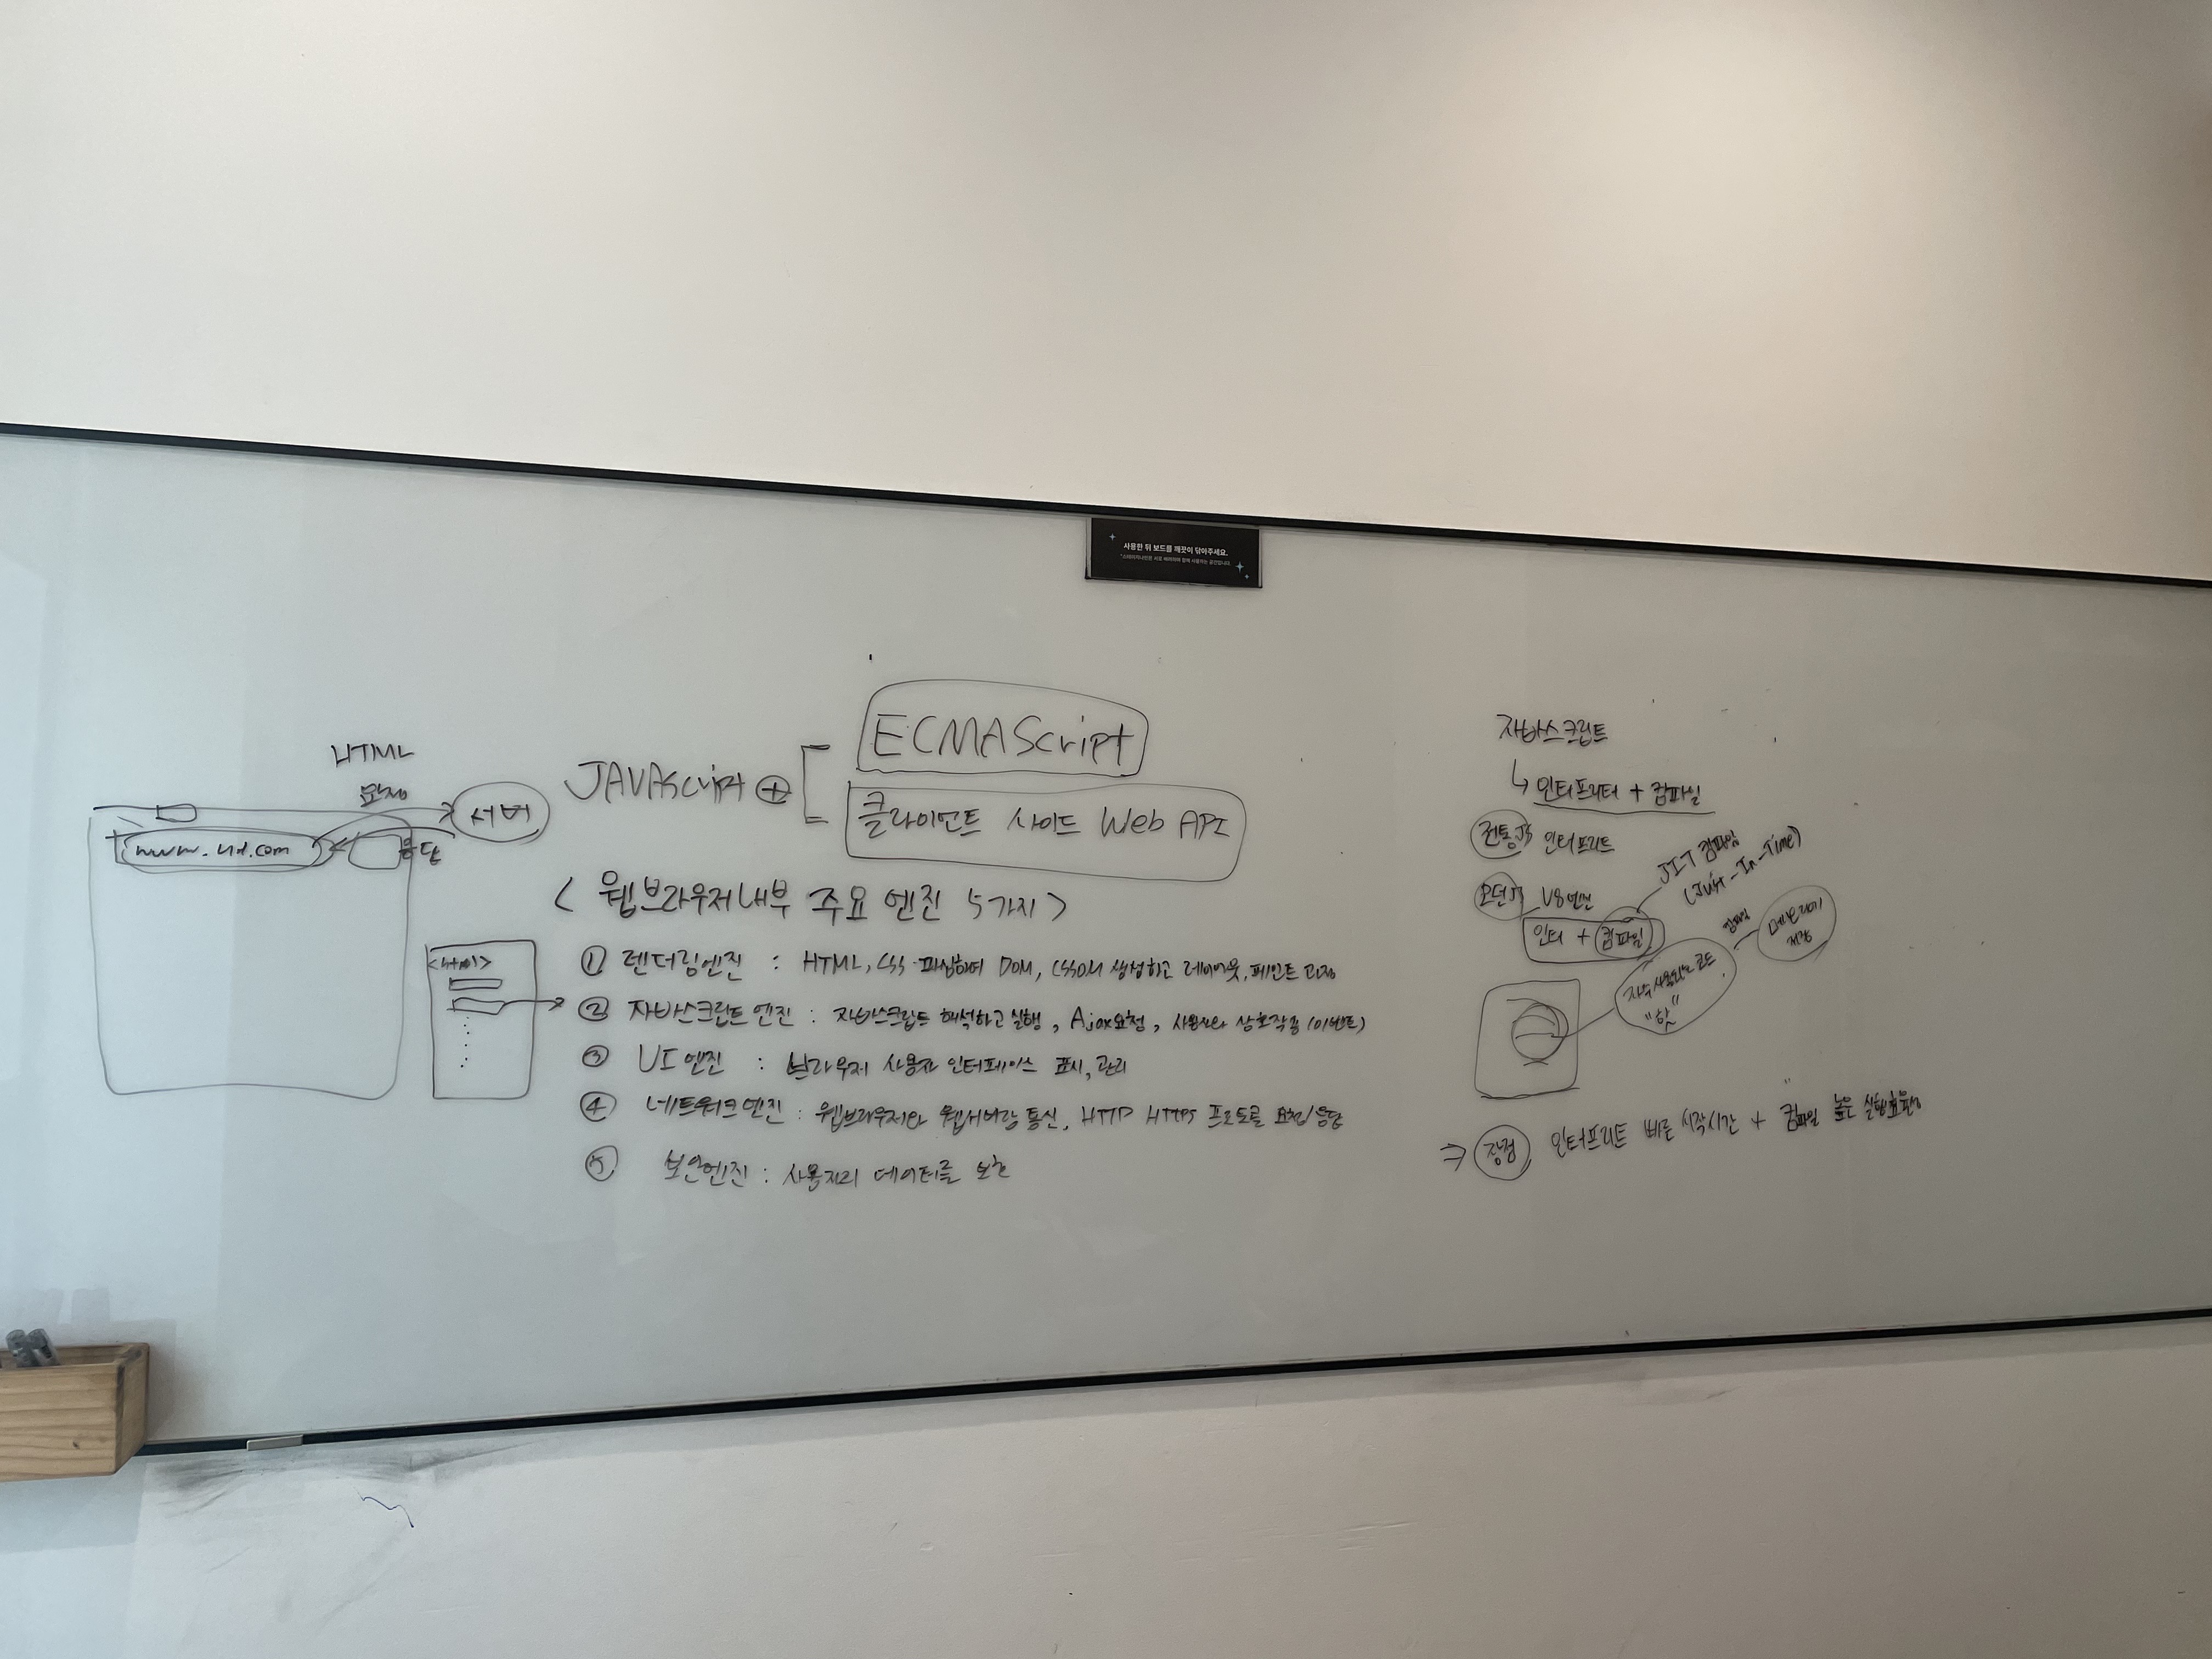 사용한 뒤 보드를 깨끗이 닦아주세요.
HTML
요청
서버
응답
JAVAScript +
ECMAScript
클라이언트 사이드 Web API
< 웹브라우저 내부 주요 엔진 5가지 >
<html>
① 렌더링엔진 : HTML, CSS 파싱하여 DOM, CSSOM 생성하고 레이아웃, 페인트 과정
② 자바스크립트 엔진 : 자바스크립트 해석하고 실행, Ajax요청, 사용자와 상호작용 (이벤트)
③ UI 엔진 : 브라우저 사용자 인터페이스 표시, 관리
④ 네트워크 엔진 : 웹브라우저와 웹서버랑 통신, HTTP HTTPS 프로토콜 요청/응답
⑤ 보안엔진 : 사용자의 데이터를 보호
자바스크립트
↳ 인터프리터 + 컴파일
전통JS 인터프리트
모던JS V8엔진
인터 + 컴파일
JIT 컴파일
(Just-In-Time)
자주 사용되는 코드
"핫"
컴파일
메모리에
저장
⇒ 장점 인터프리트 빠른 시작시간 + 컴파일 높은 실행효율성